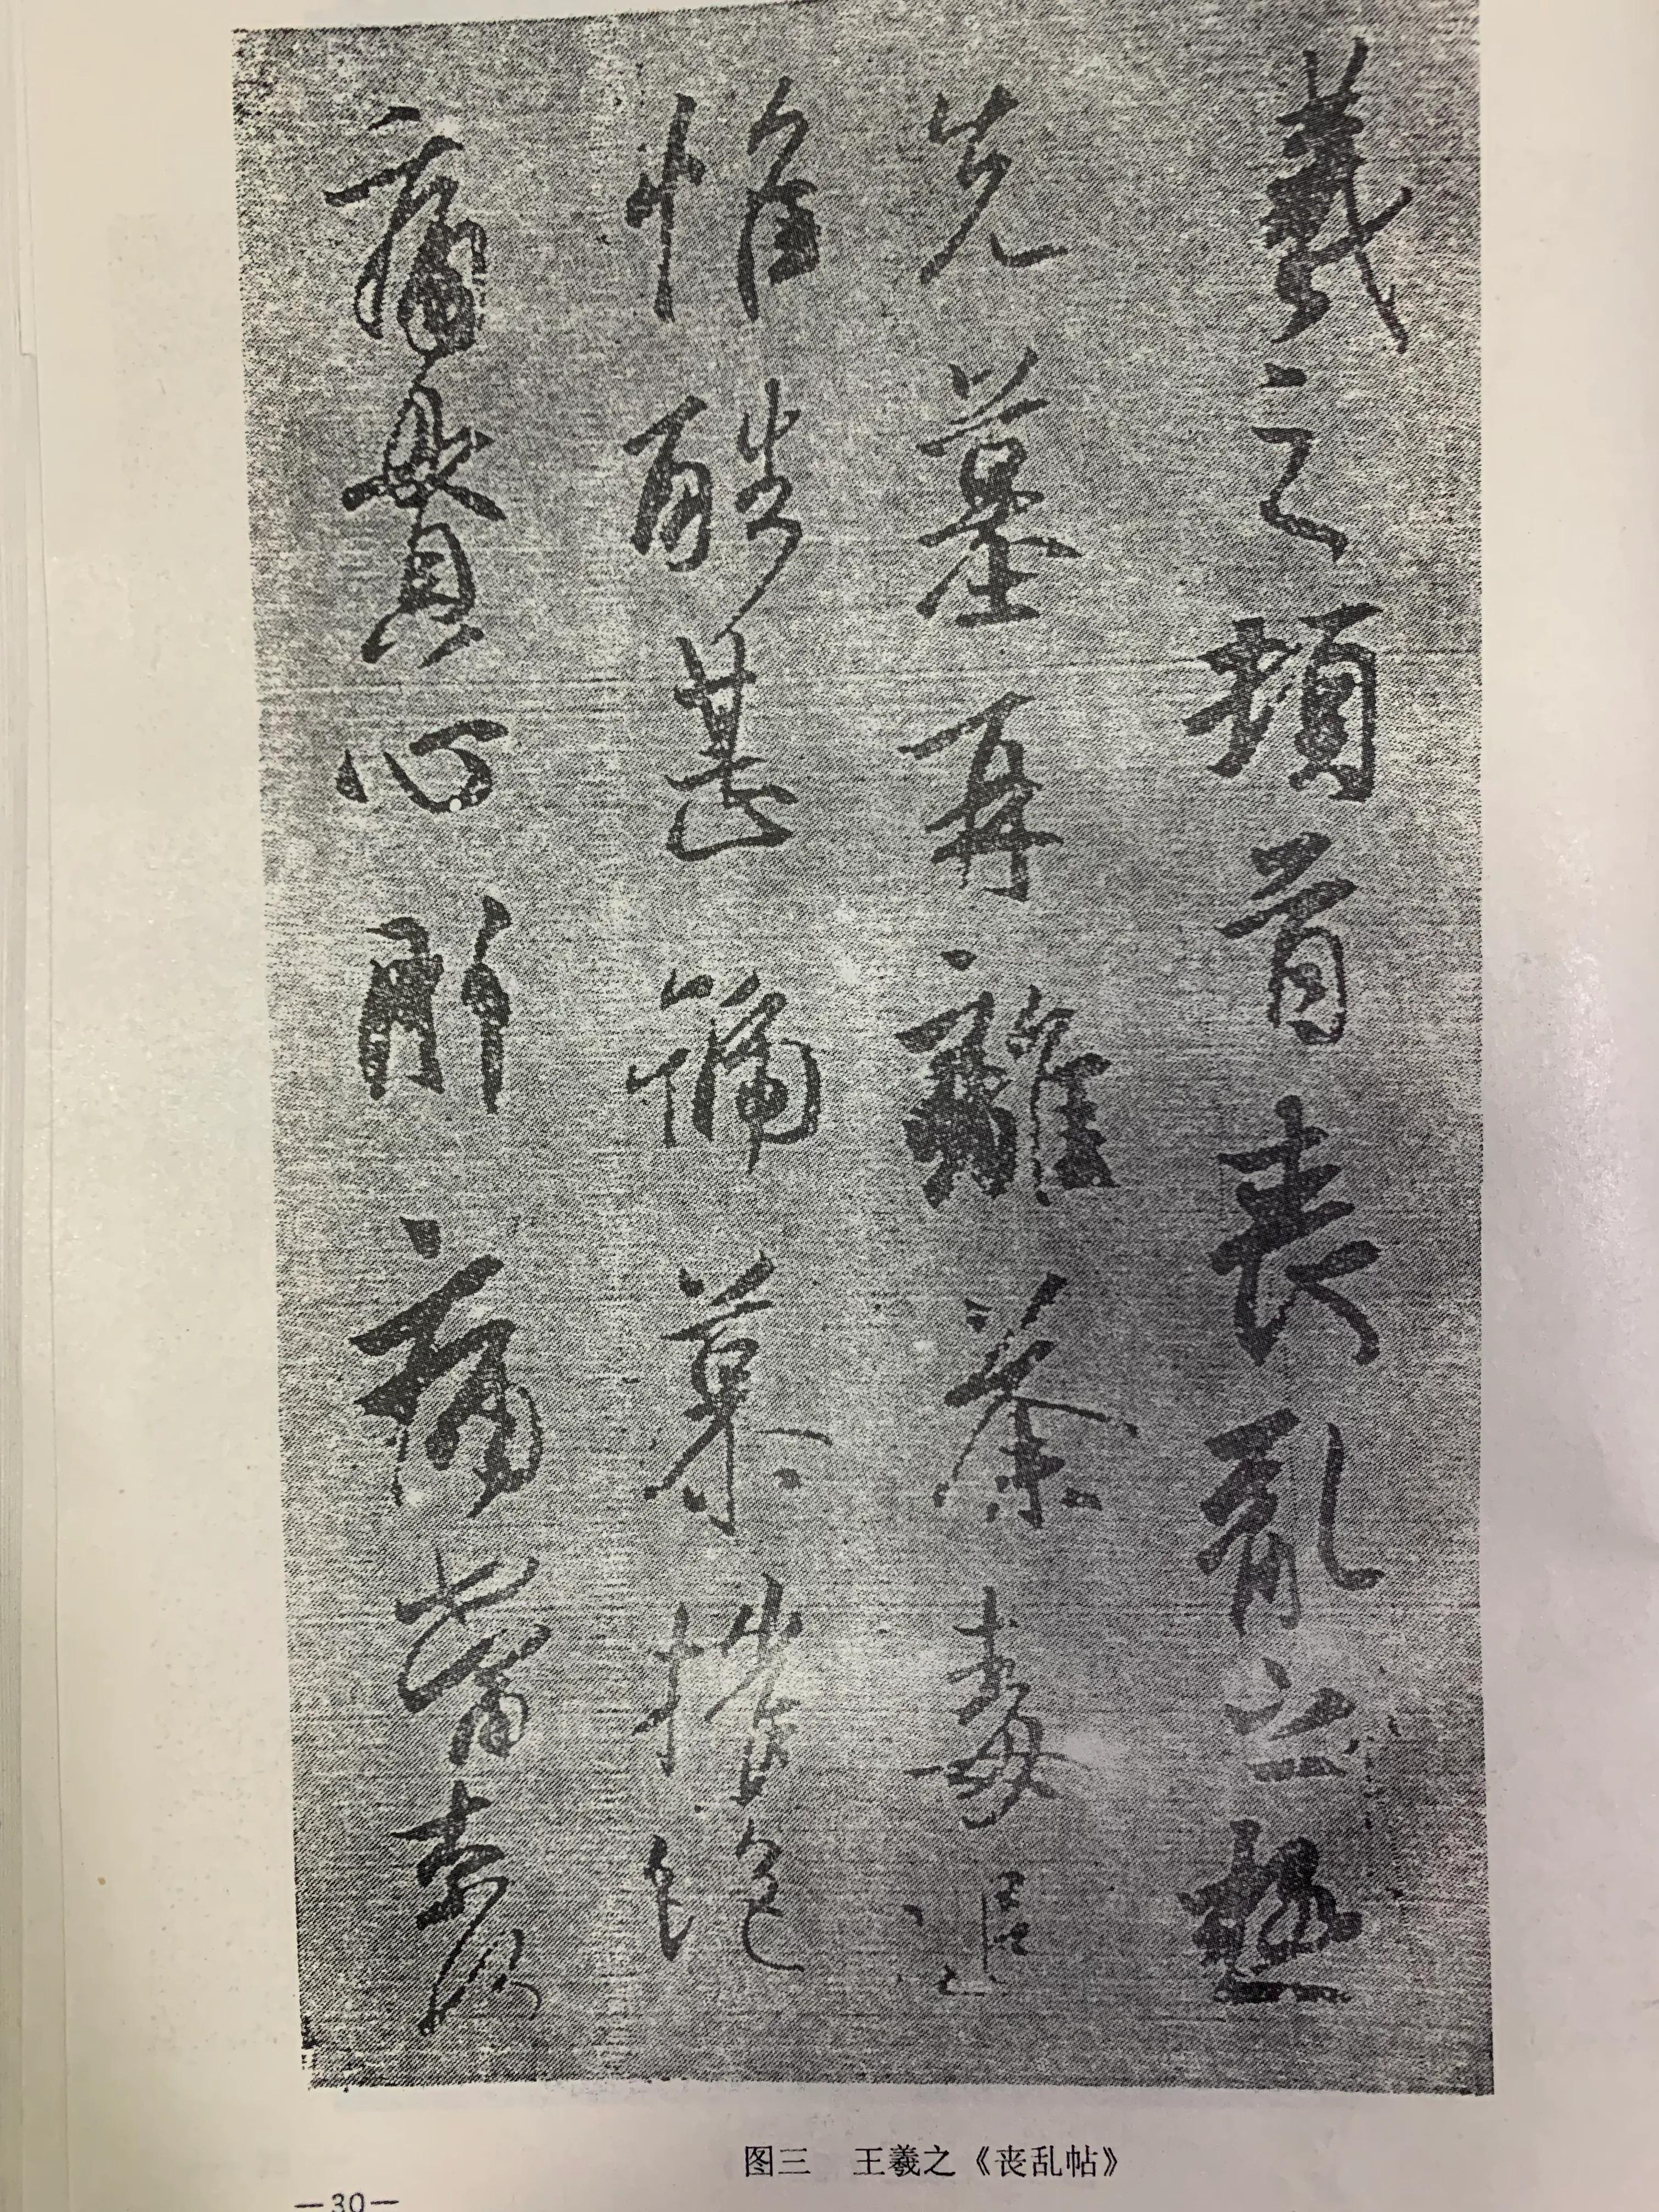 羲之頓首喪亂之極
先墓再離荼毒追
惟酷甚號慕摧絶
痛貫心肝痛當奈何
图三　王羲之《丧乱帖》
—30—